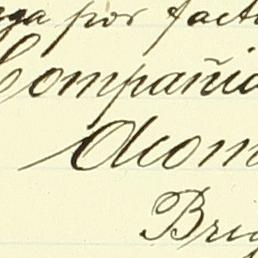 ga por factu
Compañia
Acom
Brig